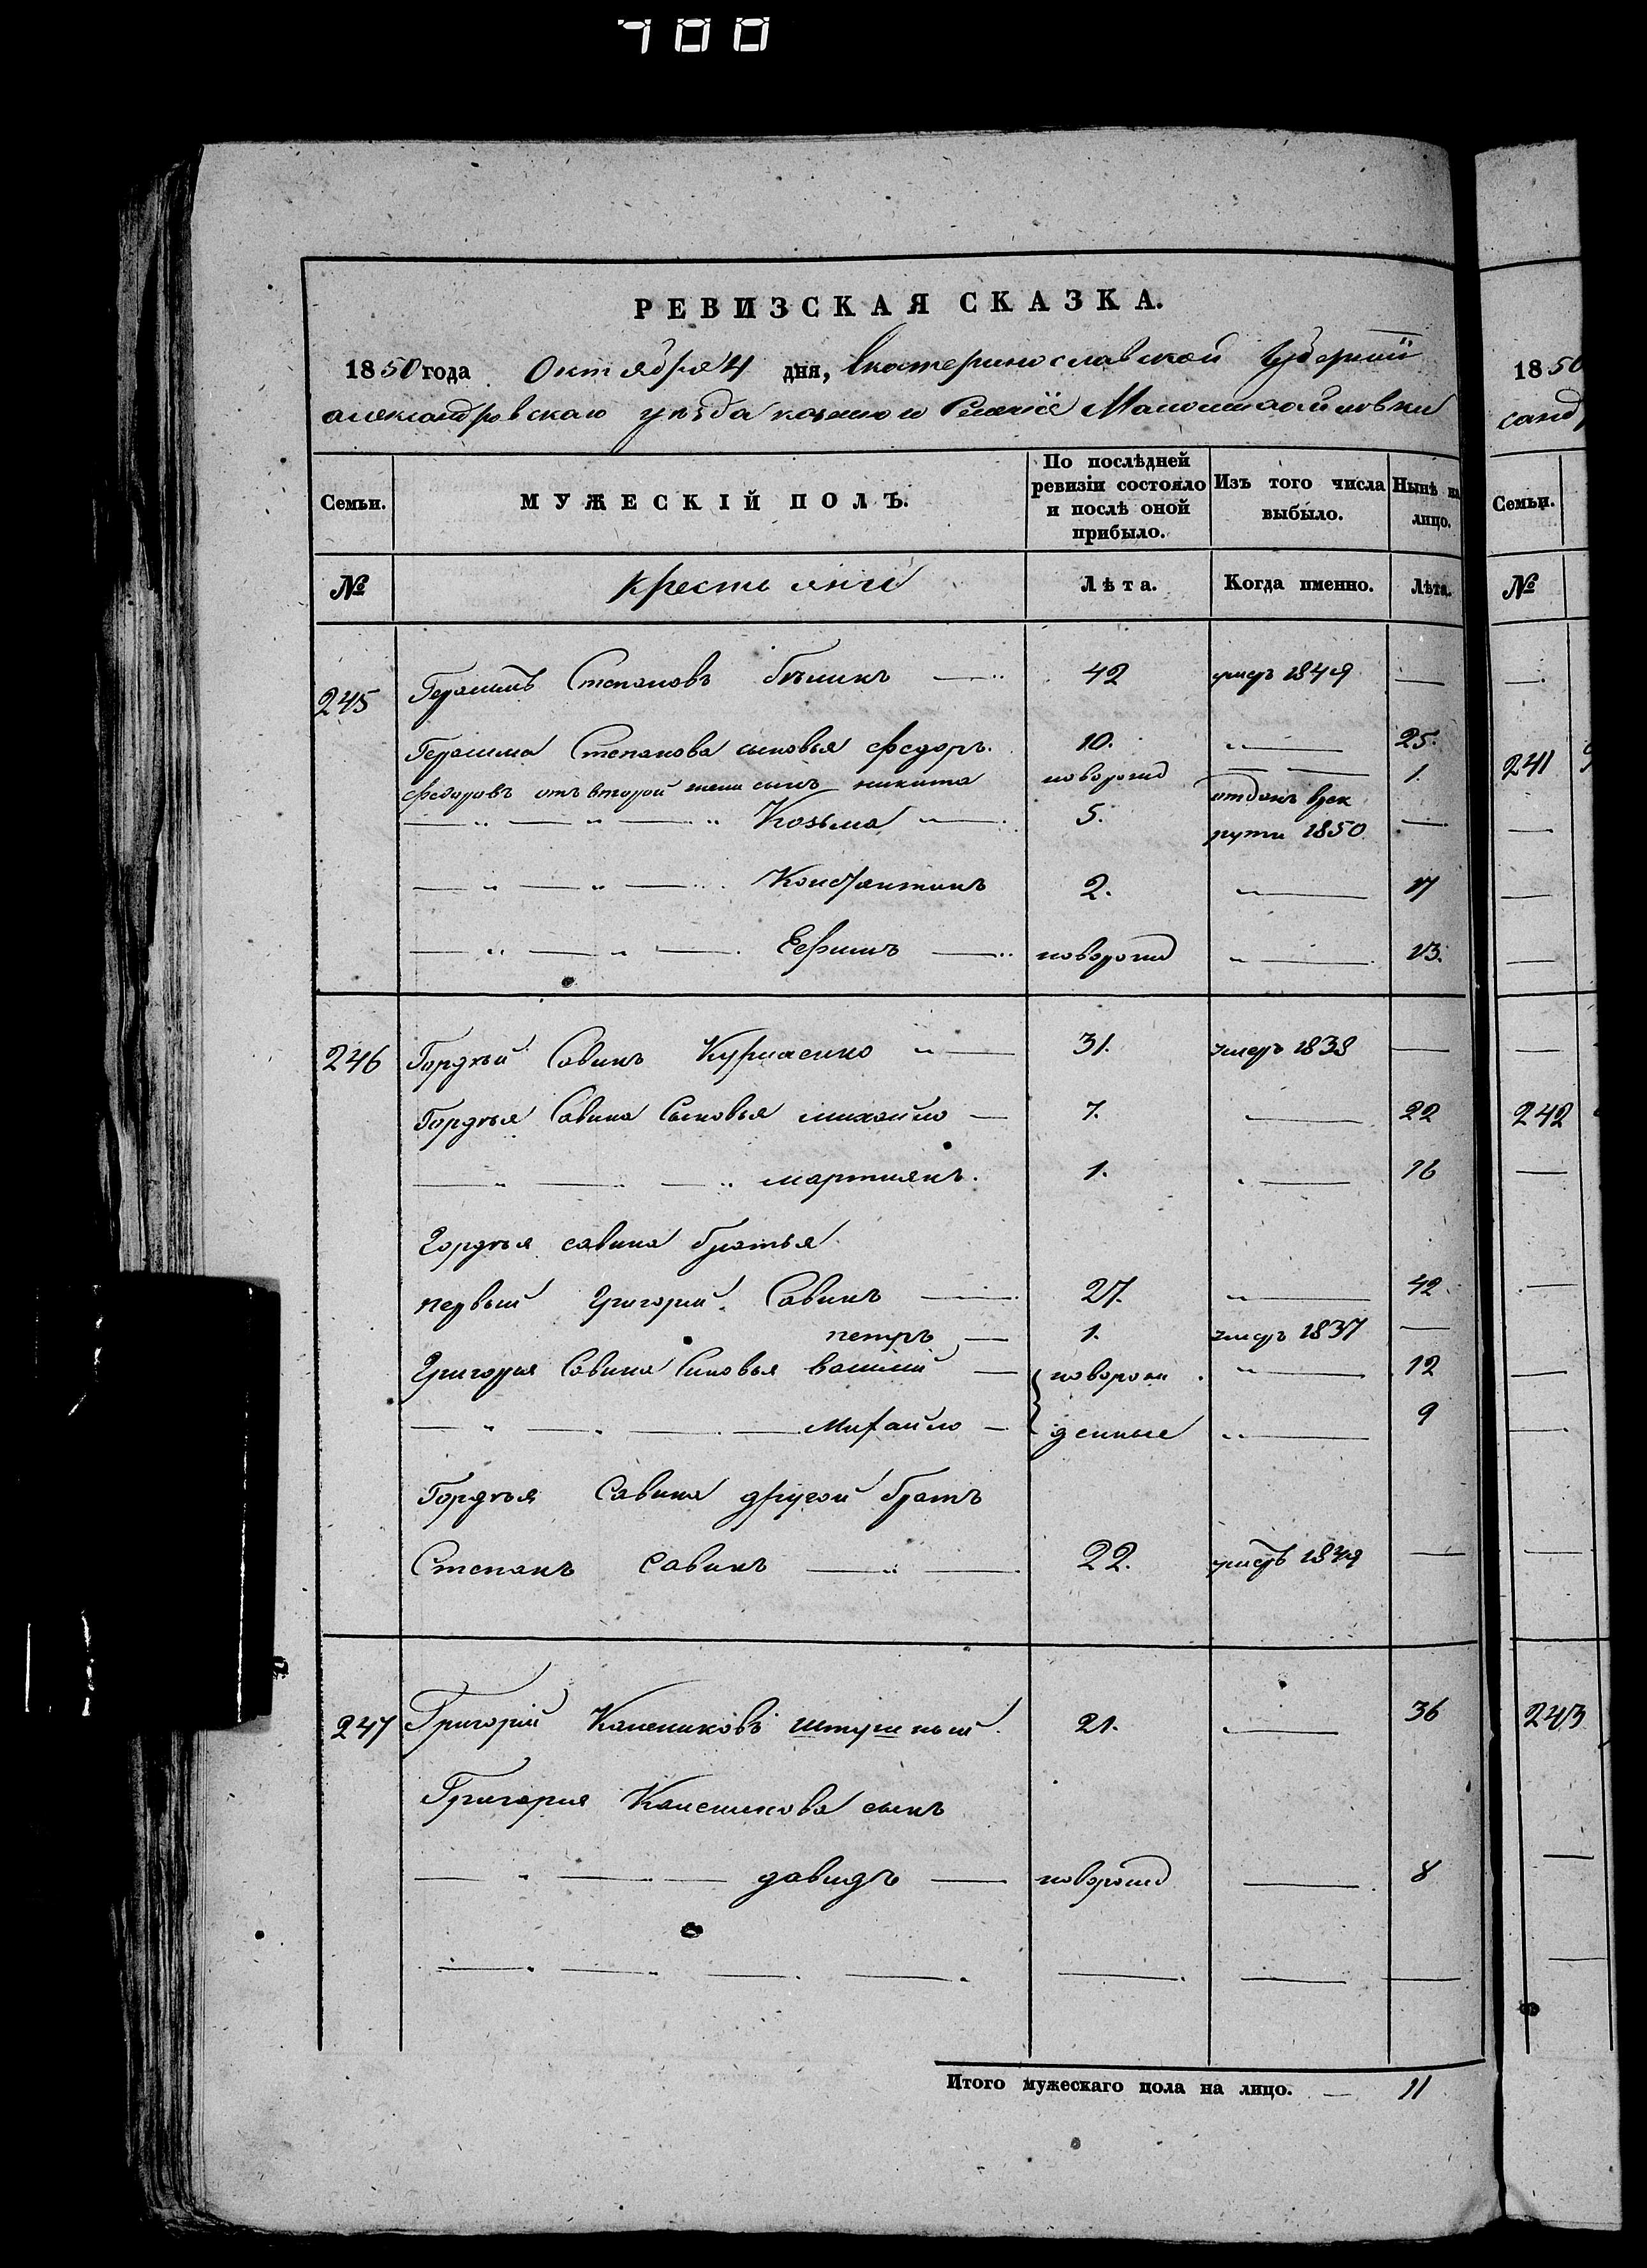 700
РЕВИЗСКАЯ СКАЗКА.
1850 года Октября 4 дня, Екатеринославской Губернии
александровскаго уезда казенного Селения Маломихайловки
Семьи.
МУЖЕСКІЙ ПОЛЪ.
По послѣдней ревизіи состояло и послѣ оной прибыло.
Изъ того числа выбыло.
Нынѣ на лицо.
№ крестьяне Лѣта. Когда именно. Лѣта.
245 Герасимъ Степановъ 42 умеръ 1849 —
Герасима Степанова сыновья Федоръ. 10. „— 25.
Федоровъ отъ второй жены сынъ никита новорожд — 1.
Козьма 5. отданъ врек
рути 1850 —
Константинъ 2. „— 17
Ефимъ новорожд „— 13.
246 Гордѣй Савинъ 31. умеръ 1838 —
Гордѣя Савина Сыновья михайло — 7. — 22
мартиянъ. 1. „— 16
Гордѣя савина братья
первый Григорий Савинъ — 27. „— 42.
петръ — 1. умеръ 1837 —
Григория Савина Сыновья василий — новорож „— 12
Михайло — денные „— 9
Гордѣя Савина другой братъ
Степанъ Савинъ — 22. умеръ 1849 —
247 Григорій 21. „— 36
Григория сынъ
давидъ — новорожд — 8
Итого мужескаго пола на лицо. — 11
1850
санд
Семьи.
№
241
242
243